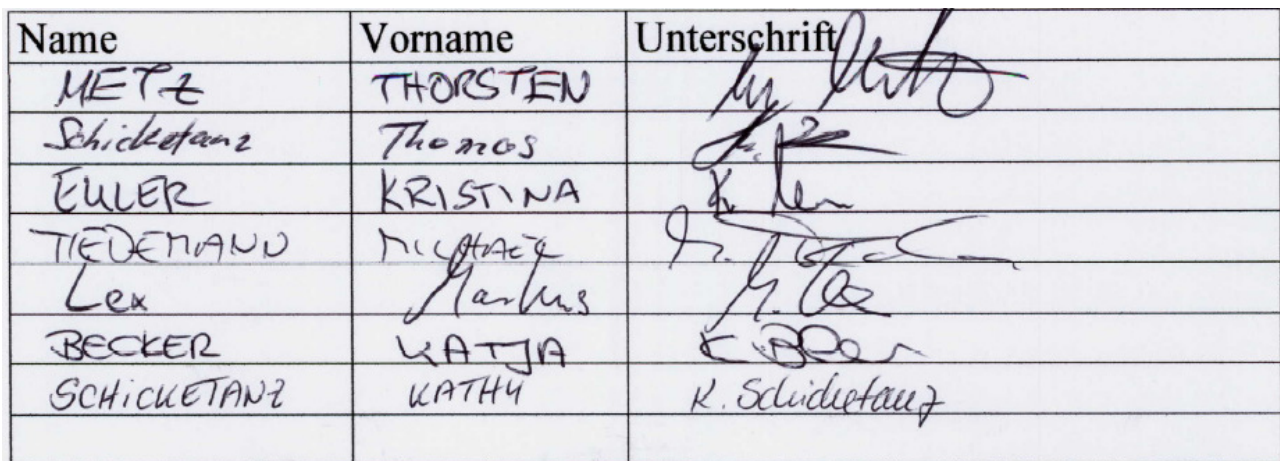 Name Vorname Unterschrift
METZ THORSTEN
Schicketanz Thomas
EULER KRISTINA K.
TIEDEMANN MICHAEL
Lex Markus M. Lex
BECKER KATJA K.
SCHICKETANZ KATHY K. Schicketanz